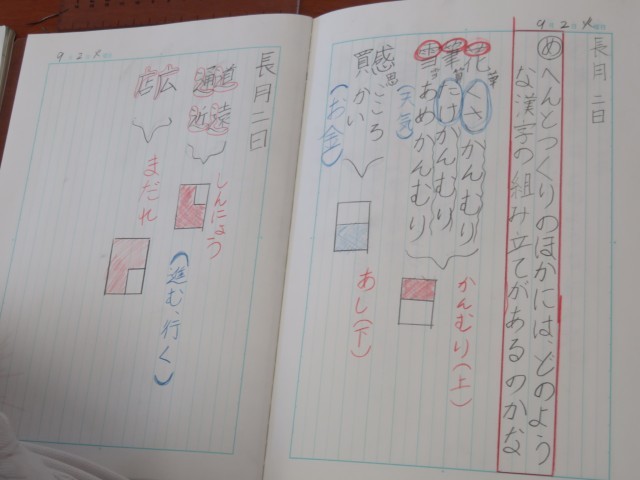 9 2 火
長月二日
めへんとつくりのほかには、どのよう
な漢字の組み立てがあるのかな
花草かんむり
筆たけかんむり
雪あめかんむり
(天気)
かんむり(上)
感思こころ
買かい
(お金)
あし(下)
9 2 火
長月二日
道遠
通近
しんにょう
(進む、行く)
広
店
まだれ